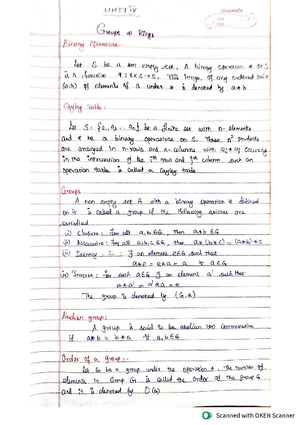 UNIT IV
Groups & Rings
Binary Operations:
Let S be a non empty set. A binary operation * on S
is a function *: S×S→S. This image of any ordered pair
(a,b) of elements of S under * is denoted by a*b
Cayley Table:
Let S = {a₁, a₂, ... aₙ} be a finite set with n-elements
and * be a binary operations on S. These n² products
are arranged in n-rows and n-columns with aᵢ*aⱼ occuring
in the intersection of the iᵗʰ row and jᵗʰ column such an
operation table is called a Cayley table.
Groups
A non empty set G with a binary operation * defined
on it is called a group if the following axioms are
satisfied
(i) Closure: For all a,b∈G, then a*b∈G
(ii) Associative: For all a,b,c∈G, then a*(b*c) = (a*b)*c
(iii) Identity: ∃ an element e∈G such that
a*e = e*a = a ∀ a∈G
(iv) Inverse: For each a∈G ∃ an element a' such that
a*a' = a'*a = e
The group is denoted by (G,*)
Abelian group:
A group is said to be abelian (or) commutative
if a*b = b*a ∀ a,b∈G
Order of a group:-
Let G be a group under the operation *. The number of
elements in Group G is called the order of the group G
and it is denoted by O(G)
Scanned with OKEN Scanner